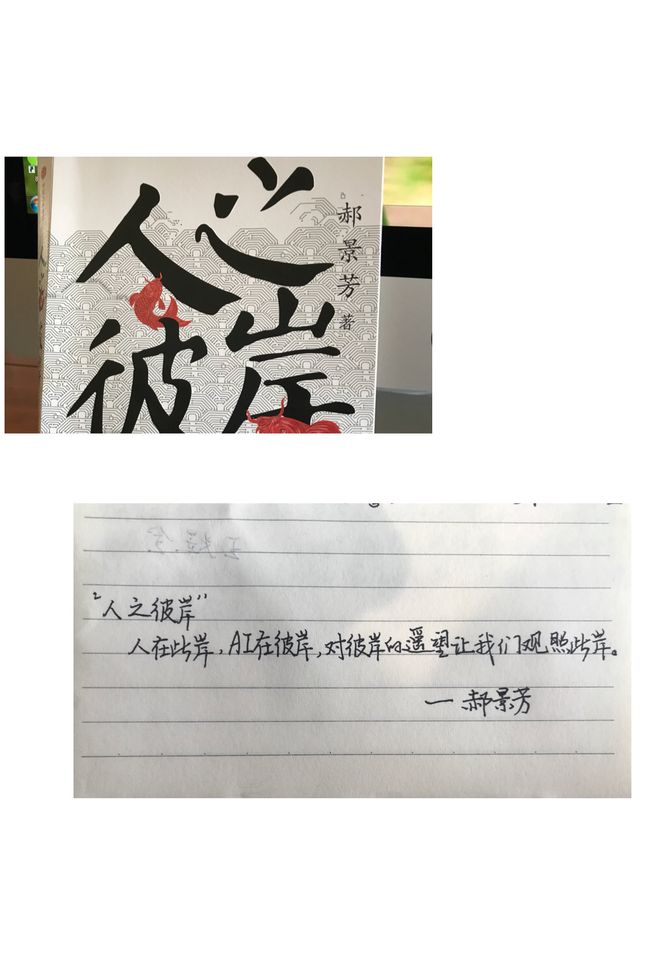 人之
彼岸
郝景芳 著
"人之彼岸"
人在此岸,AI在彼岸,对彼岸的遥望让我们观照此岸。
— 郝景芳